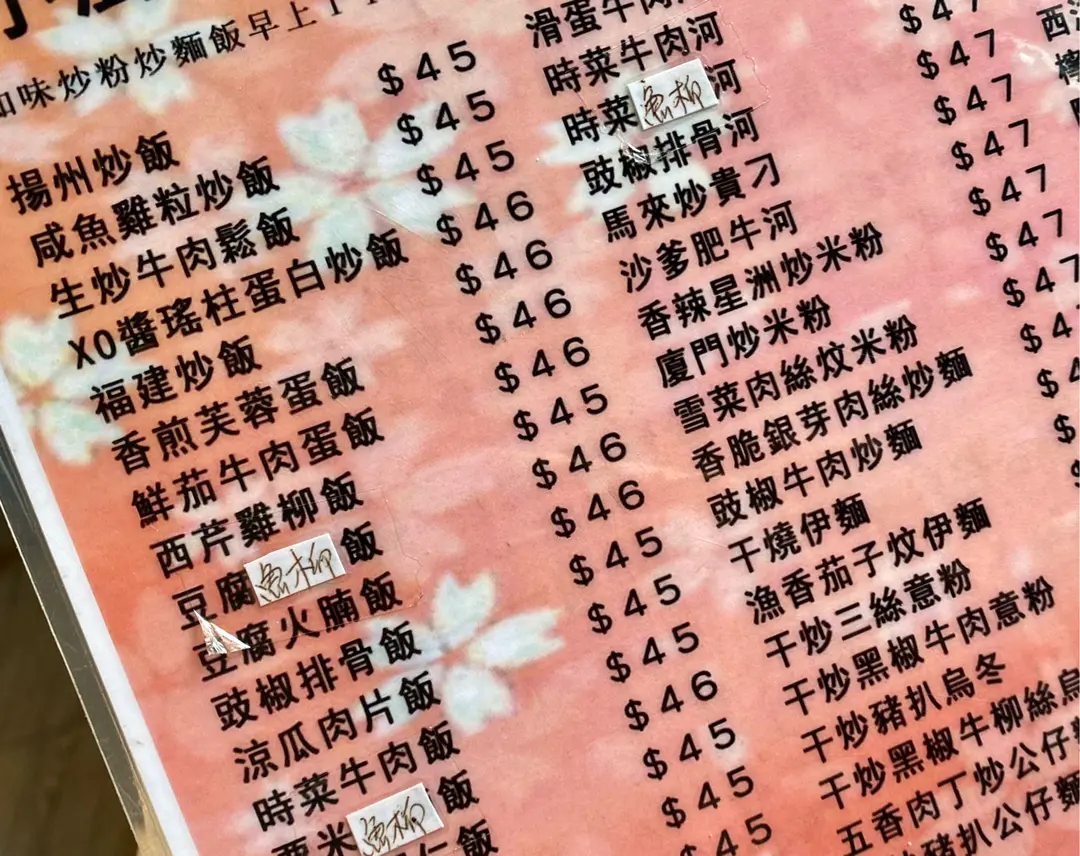 和味炒粉炒麵飯早上11
揚州炒飯 $45
咸魚雞粒炒飯 $45
生炒牛肉鬆飯 $45
XO醬瑤柱蛋白炒飯 $46
福建炒飯 $46
香煎芙蓉蛋飯 $46
鮮茄牛肉蛋飯 $46
西芹雞柳飯 $45
豆腐魚柳飯 $46
豆腐火腩飯 $46
豉椒排骨飯 $45
涼瓜肉片飯 $45
時菜牛肉飯 $45
粟米魚柳飯 $46
仁飯 $45
$45
$45
滑蛋牛肉河
時菜牛肉河
時菜魚柳河 $47
豉椒排骨河 $47
馬來炒貴刁 $47
沙爹肥牛河 $47
香辣星洲炒米粉 $47
廈門炒米粉 $47
雪菜肉絲炆米粉 $47
香脆銀芽肉絲炒麵 $4
豉椒牛肉炒麵 $
干燒伊麵 $
漁香茄子炆伊麵 $
干炒三絲意粉
干炒黑椒牛肉意粉
干炒豬扒烏冬
干炒黑椒牛柳絲烏
五香肉丁炒公仔麵
豬扒公仔麵
西